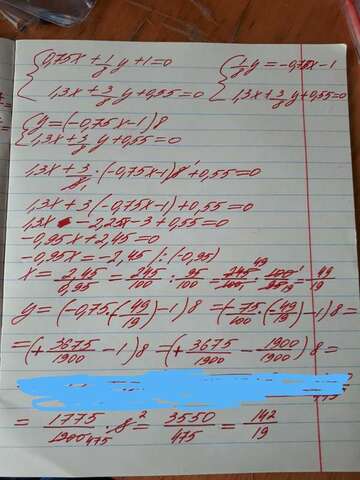 {0,75x + 1/8 y + 1 = 0 {1/8 y = -0,75x - 1
1,3x + 3/8 y + 0,55 = 0 1,3x + 3/8 y + 0,55 = 0
{y = (-0,75x - 1)8
1,3x + 3/8 y + 0,55 = 0
1,3x + 3/8 · (-0,75x - 1) 8 + 0,55 = 0
1,3x + 3(-0,75x - 1) + 0,55 = 0
1,3x - 2,25x - 3 + 0,55 = 0
-0,95x + 2,45 = 0
-0,95x = -2,45 /:(-0,95)
x = 2,45/0,95 = 245/100 : 95/100 = 245/100 · 100/95 = 49/19
y = (-0,75 · (-49/19) - 1)8 = (-75/100 · (-49/19) - 1)8 =
= (+3675/1900 - 1)8 = (+3675/1900 - 1900/1900)8 =
= 1775/1900 · 8 = 3550/475 = 142/19